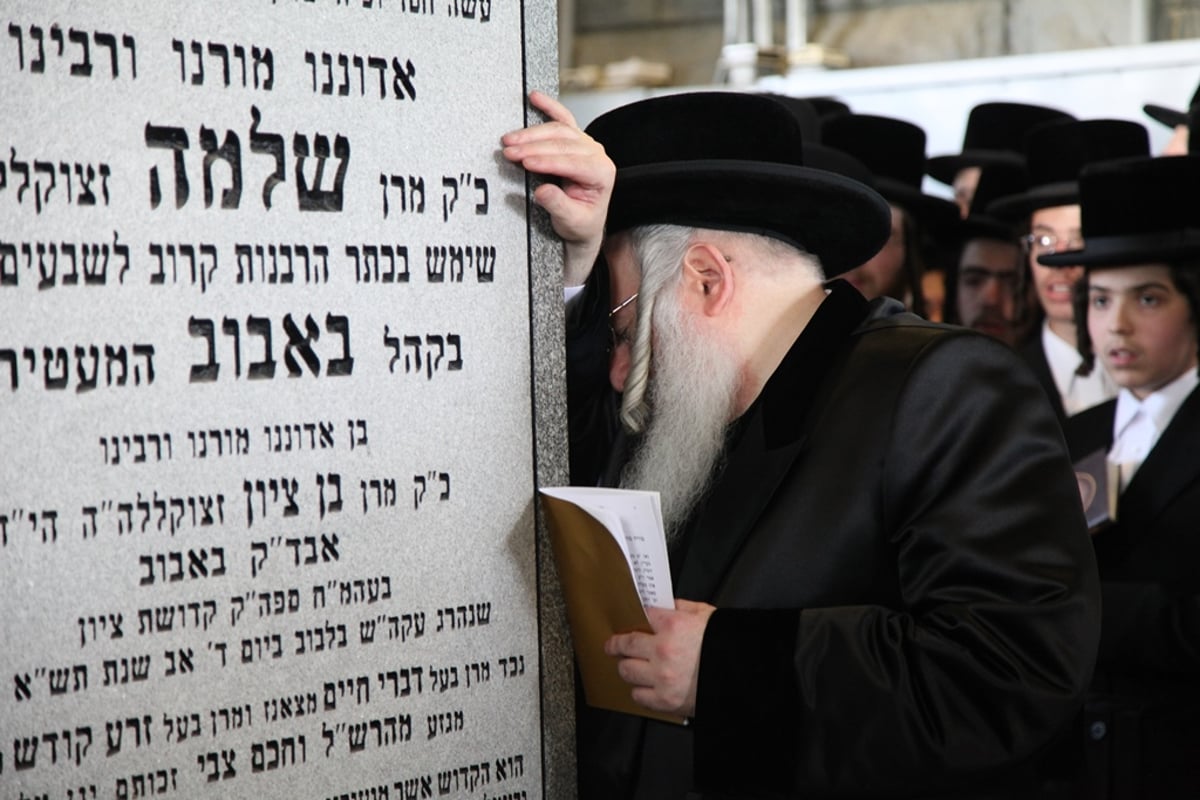 אדוננו מורנו ורבינו
כ"ק מרן שלמה זצוקללה
שימש בכתר הרבנות קרוב לשבעים
בקהל באבוב המעטיר
בן אדוננו מורנו ורבינו
כ"ק מרן בן ציון זצוקללה"ה הי"ד
אבד"ק באבוב
בעהמ"ח ספה"ק קדושת ציון
שנהרג עקה"ש בלבוב ביום ד' אב שנת תש"א
נכד מרן בעל דברי חיים מצאנז ומרן בעל זרע קודש
מגזע מהרש"ל וחכם צבי זכותם
הוא הקדוש אשר